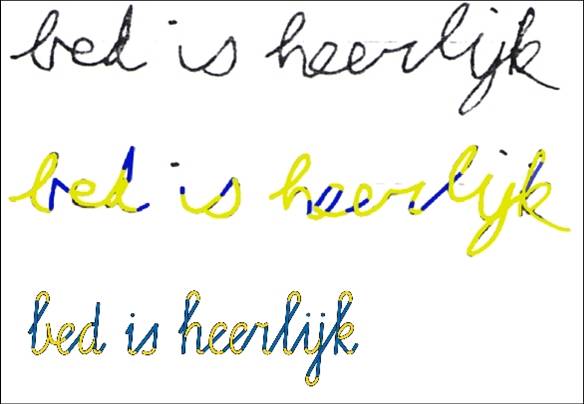 bed is heerlijk
bed is heerlijk
bed is heerlijk